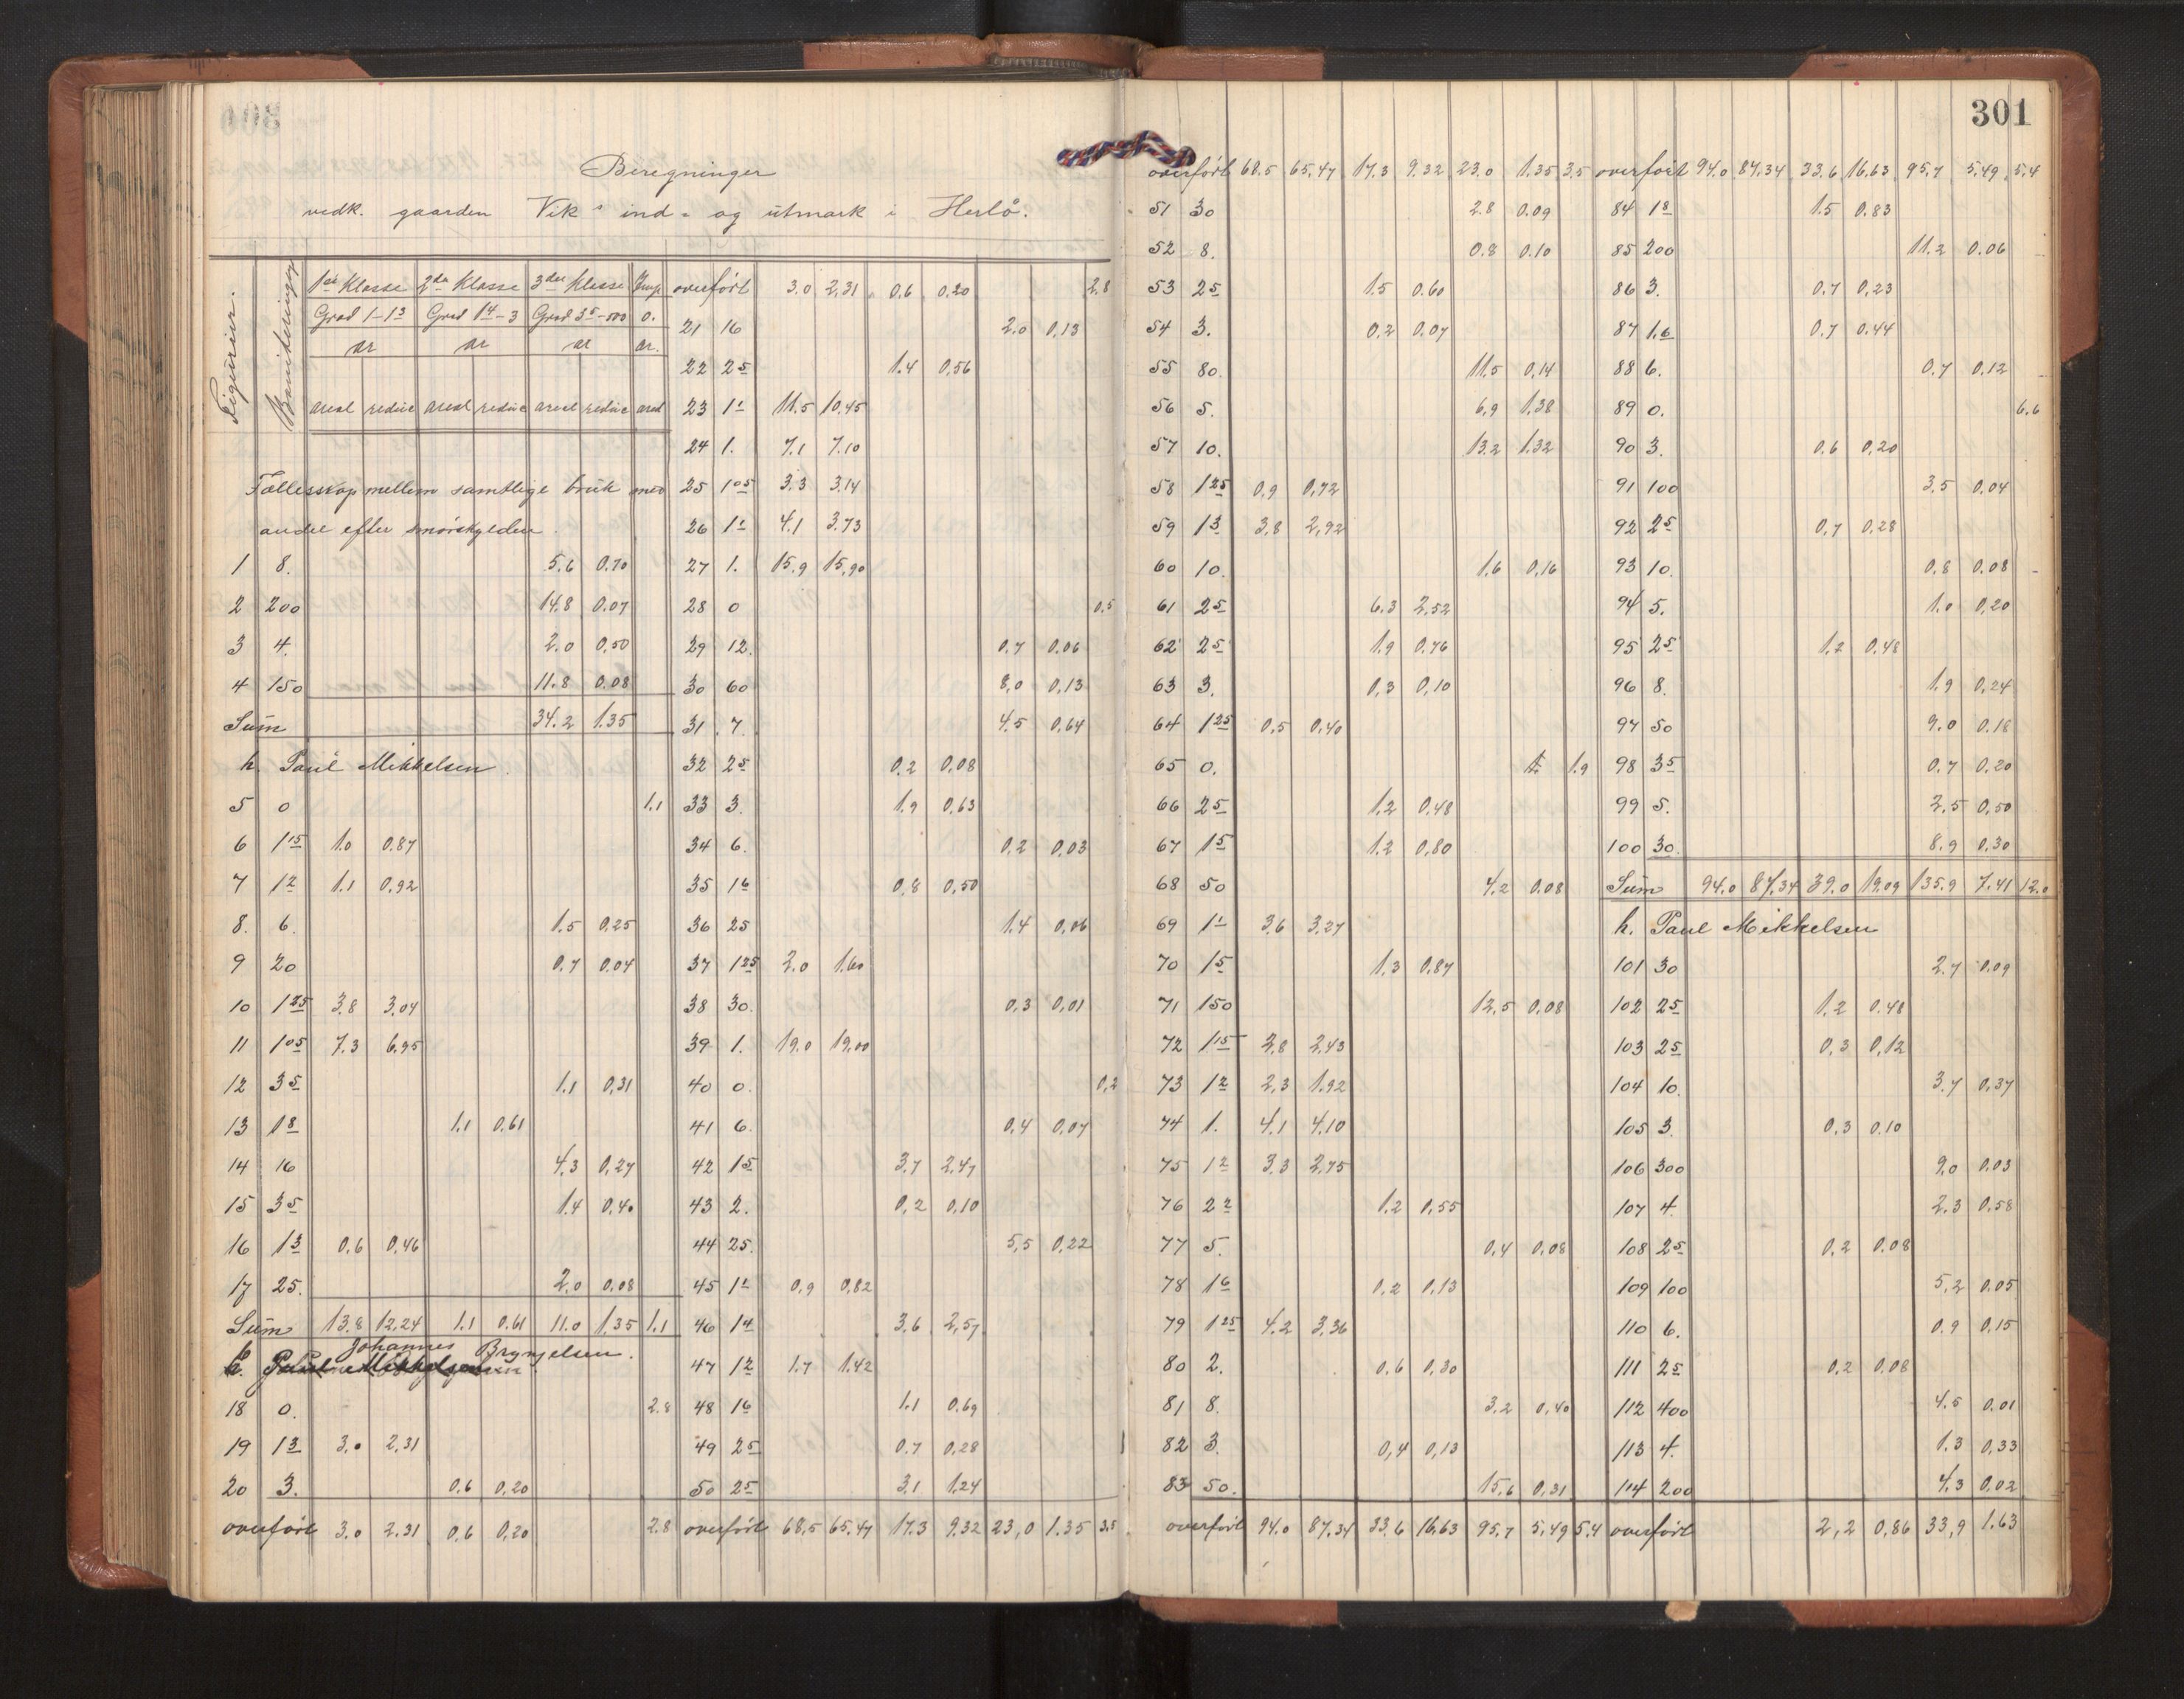 301
Beregninger
vedk. gaarden Vik's ind- og utmark i Herlö.
Figurier. Boniteringer 1ste Klasse 2den Klasse 3die Klasse Imp.
Grad 1-1³ Grad 1⁴-3 Grad 3⁵-500 0.
ar ar ar ar.
areal reduc areal reduc areal reduc areal
Fællesskap mellem samtlige bruk med
andel efter smörskylden.
1 8. 5.6 0.70
2 200 14.8 0.07
3 4. 2.0 0,50
4 150 11.8 0.08
Sum 34.2 1.35
h. Paul Mikkelsen.
5 0 1.1
6 1¹⁵ 1.0 0.87
7 1² 1.1 0.92
8. 6. 1.5 0.25
9 20 0.7 0.04
10 1²⁵ 3.8 3.04
11 1⁰⁵ 7.3 6.95
12 3⁵ 1.1 0,31
13 1⁸ 1.1 0.61
14 16 4.3 0,27
15 3⁵ 1.4 0.40
16 1³ 0.6 0,46
17 25. 2.0 0.08
Sum 13.8 12.24 1.1 0.61 11.0 1.35 1.1
b Johannes Brynjelsen.
18 0. 2.8
19 1³ 3.0 2.31
20 3. 0.6 0,20
overført 3.0 2.31 0.6 0,20 2.8
overført 3.0 2,31 0.6 0.20 2.8
21 16 2.0 0,13
22 2⁵ 1.4 0,56
23 1¹ 11.5 10.45
24 1. 7.1 7.10
25 1⁰⁵ 3.3 3.14
26 1¹ 4.1 3.73
27 1. 15.9 15,90
28 0 0,5
29 12. 0.7 0.06
30 60 8,0 0,13
31 7. 4.5 0,64
32 2⁵ 0.2 0,08
33 3. 1.9 0,63
34 6. 0,2 0,03
35 1⁶ 0,8 0,50
36 25 1.4 0,06
37 1²⁵ 2.0 1.60
38 30. 0,3 0,01
39 1. 19.0 19,00
40 0. 0,2
41 6. 0,4 0,07
42 1⁵ 3,7 2,47
43 2. 0,2 0,10
44 25. 5,5 0,22
45 1¹ 0,9 0,82
46 1⁴ 3,6 2,57
47 1² 1.7 1.42
48 1⁶ 1.1 0.69
49 2⁵ 0.7 0,28
50 2⁵ 3,1 1,24
overført 68,5 65.47 17.3 9.32 23,0 1.35 3,5
overført 68.5 65.47 17.3 9.32 23.0 1.35 3.5
51 30 2.8 0.09
52 8. 0.8 0.10
53 2⁵ 1.5 0.60
54 3. 0.2 0.07
55 80. 11.5 0,14
56 5. 6,9 1,38
57 10. 13.2 1.32
58 1²⁵ 0,9 0,72
59 1³ 3,8 2,92
60 10. 1,6 0,16
61 2⁵ 6.3 2,52
62 2⁵ 1.9 0.76
63 3. 0,3 0,10
64 1²⁵ 0,5 0,40
65 0. 1.9
66 2⁵ 1.2 0,48
67 1⁵ 1.2 0,80
68 50 4,2 0,08
69 1¹ 3,6 3,27
70 1⁵ 1.3 0,87
71 150 12,5 0,08
72 1¹⁵ 2,8 2,43
73 1² 2,3 1,92
74 1. 4.1 4,10
75 1² 3,3 2,75
76 2² 1.2 0,55
77 5. 0,4 0,08
78 1⁶ 0,2 0,13
79 1²⁵ 4.2 3,36
80 2. 0,6 0,30
81 8. 3,2 0,40
82 3. 0,4 0,13
83 50. 15,6 0,31
overført 94.0 87,34 33,6 16,63 95,7 5,49 5,4
overført 94.0 87,34 33,6 16,63 95,7 5,49 5,4
84 1⁸ 1.5 0,83
85 200 11,2 0,06
86 3. 0,7 0,23
87 1.⁶ 0,7 0.44
88 6. 0,7 0,12
89 0. 6,6
90 3. 0.6 0,20
91 100 3.5 0,04
92 2⁵ 0,7 0,28
93 10. 0,8 0.08
94 5. 1.0 0,20
95 2⁵ 1,2 0,48
96 8. 1.9 0,24
97 50 9,0 0,18
98 3⁵ 0.7 0,20
99 5. 2,5 0,50
100 30. 8,9 0,30
Sum 94.0 87,34 39.0 19.09 135.9 7.41 12.0
h. Paul Mikkelsen
101 30 2.7 0.09
102 2⁵ 1.2 0.48
103 2⁵ 0,3 0,12
104 10. 3.7 0,37
105 3. 0,3 0.10
106 300 9,0 0.03
107 4. 2.3 0.58
108 2⁵ 0,2 0.08
109 100 5,2 0,05
110 6. 0.9 0.15
111 2⁵ 0,2 0.08
112 400 4.5 0.01
113 4. 1.3 0,33
114 200 4,3 0,02
overført 2,2 0,86 33,9 1.63